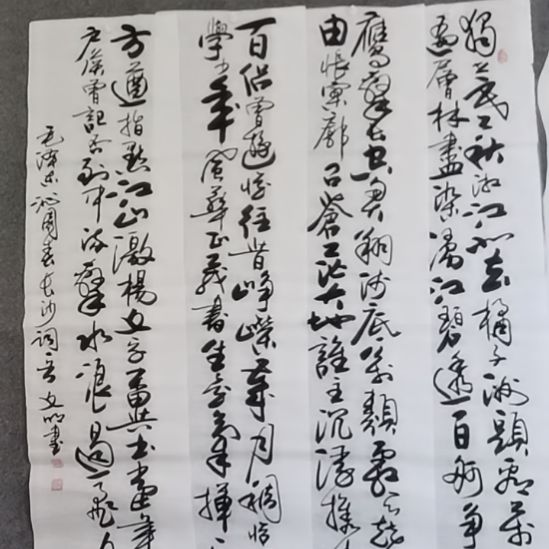 獨立寒秋湘江北去橘子洲頭看萬
遍層林盡染漫江碧透百舸爭
鷹擊長空魚翔淺底萬類霜天競
由悵寥廓問蒼茫大地誰主沉浮攜
百侶曾遊憶往昔崢嶸歲月稠恰
學少年風華正茂書生意氣揮
方遒指點江山激揚文字糞土當年
户侯曾記否到中流擊水浪遏飛
毛澤東沁園春長沙詞 文明書